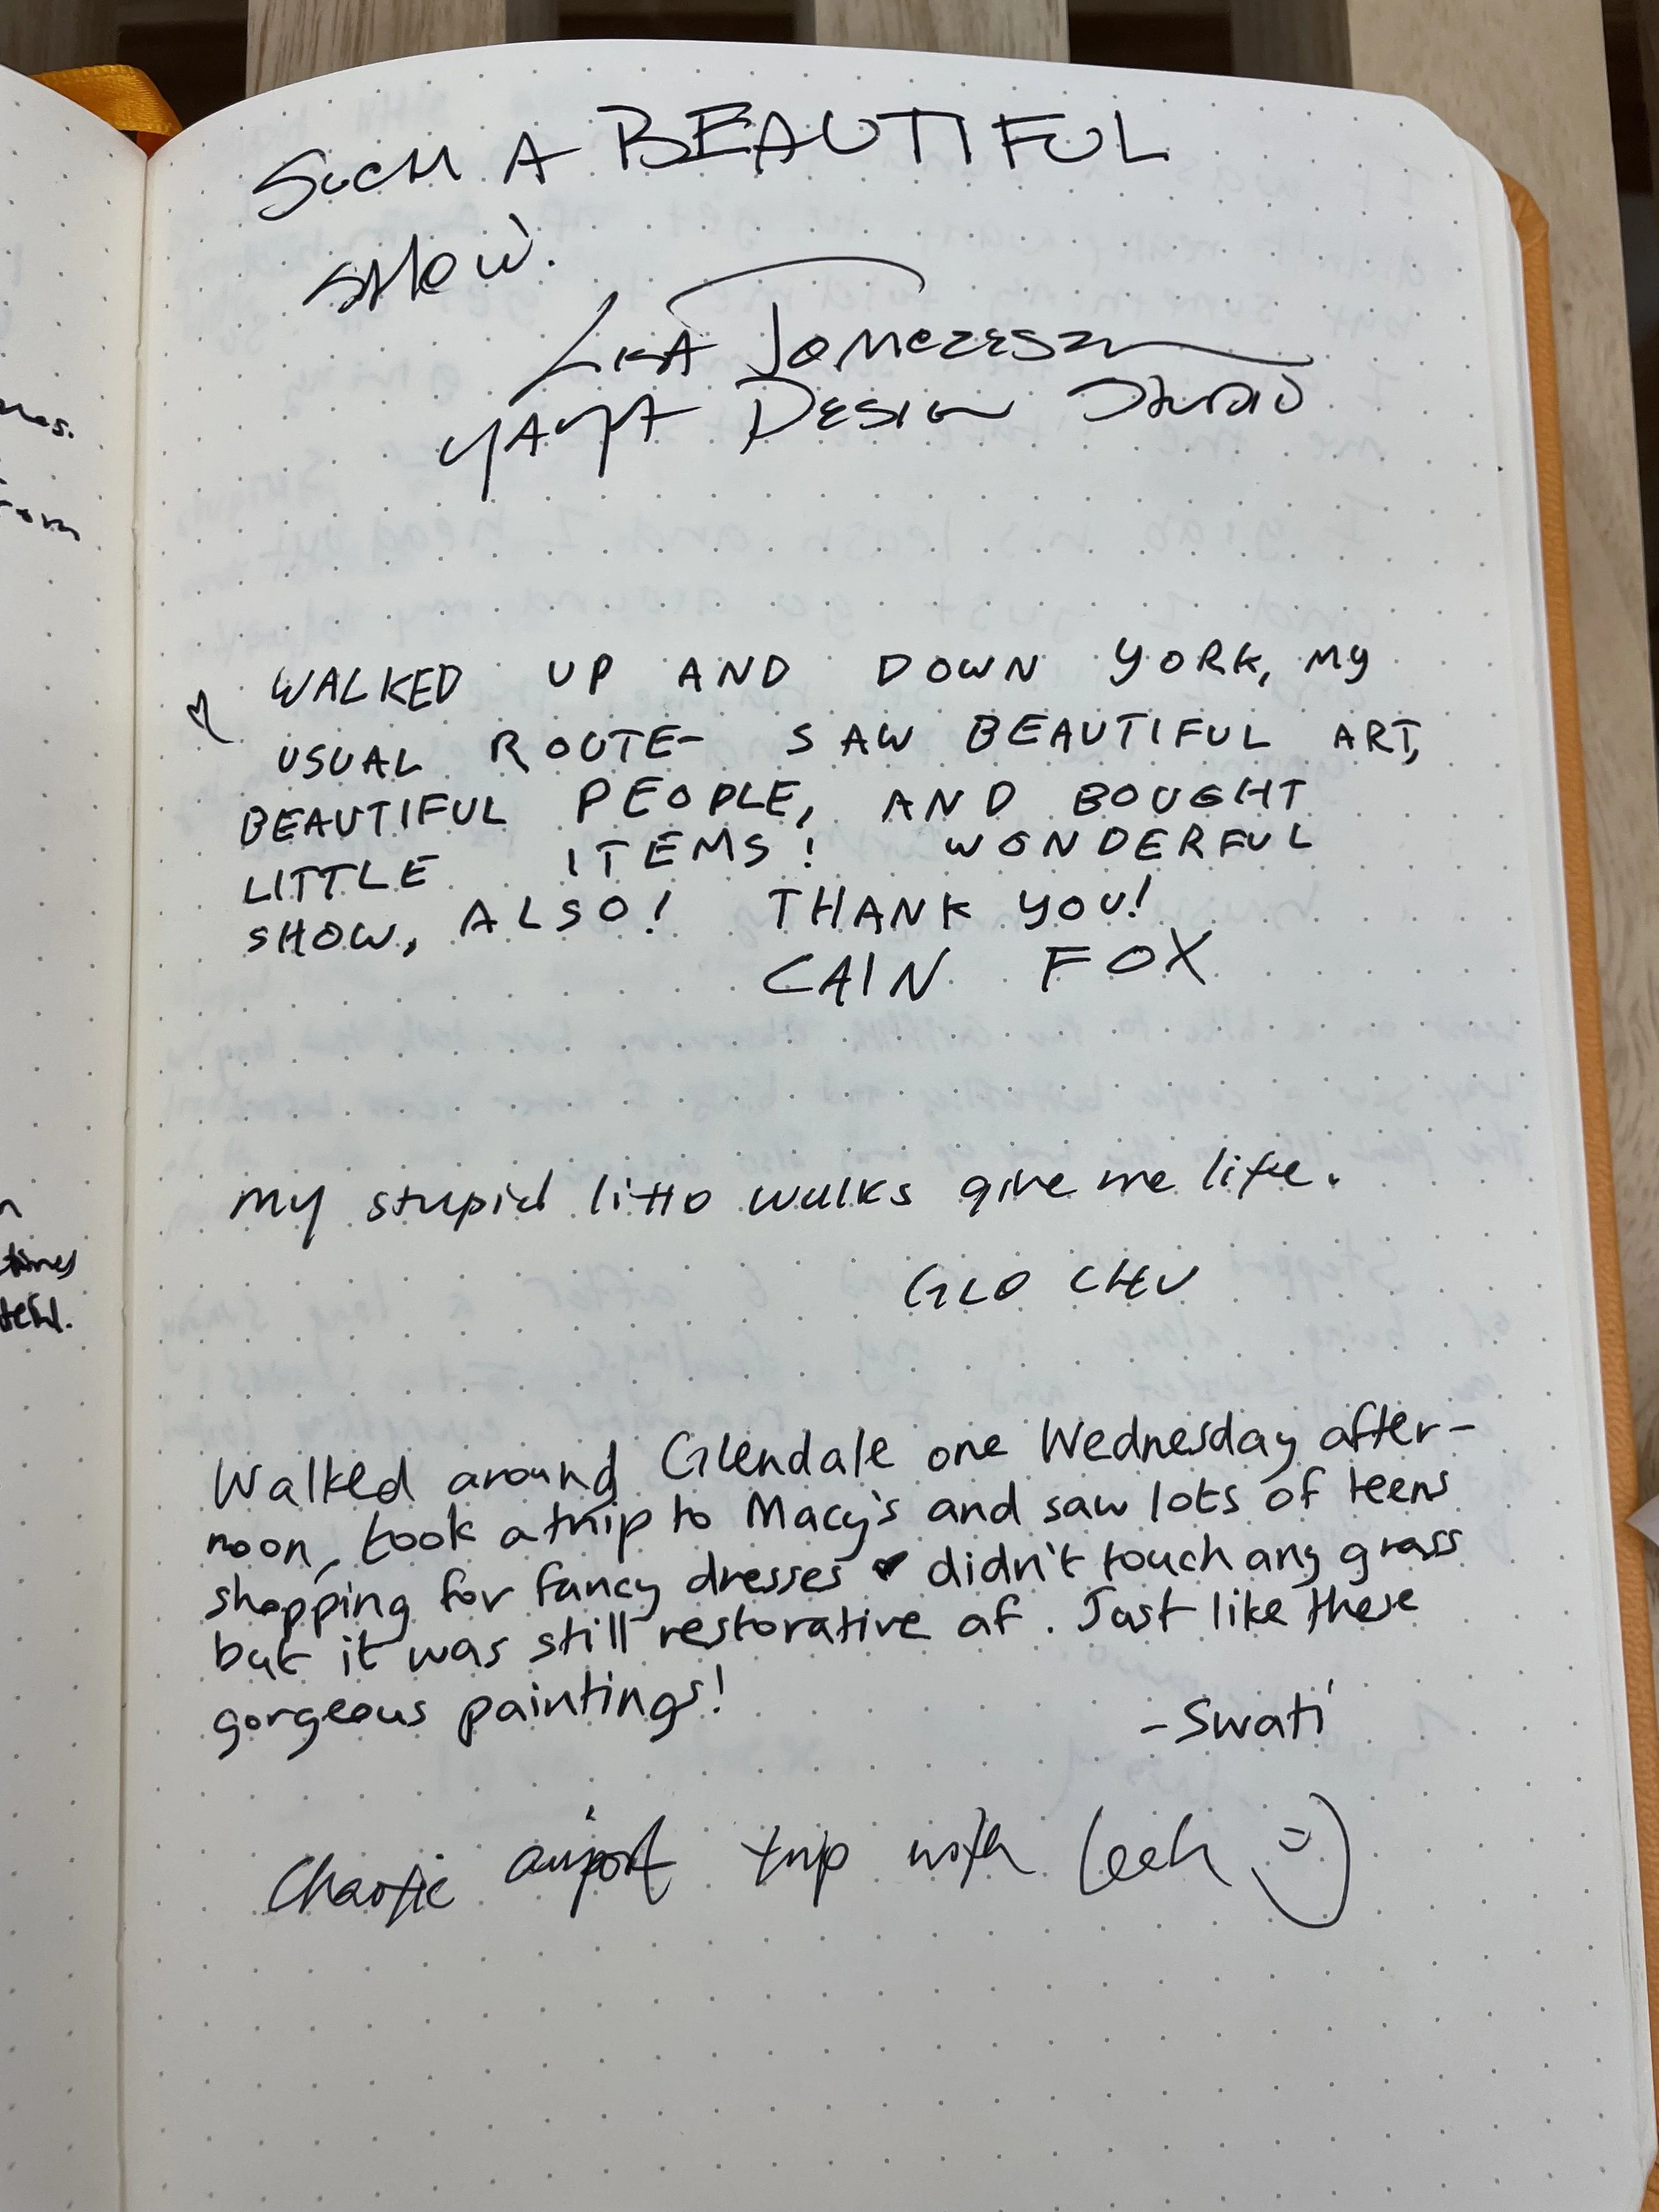 SUCH A BEAUTIFUL
SHOW.
DESIGN STUDIO
WALKED UP AND DOWN YORK, MY
USUAL ROUTE- SAW BEAUTIFUL ART,
BEAUTIFUL PEOPLE, AND BOUGHT
LITTLE ITEMS! WONDERFUL
SHOW, ALSO! THANK YOU!
CAIN FOX
my stupid litto walks give me life.
GLO CHU
Walked around Glendale one Wednesday after-
noon, took a trip to Macy's and saw lots of teens
shopping for fancy dresses ♥ didn't touch any grass
but it was still restorative af. Just like these
gorgeous paintings!
-Swati
Chaotic airport trip with Leah =)